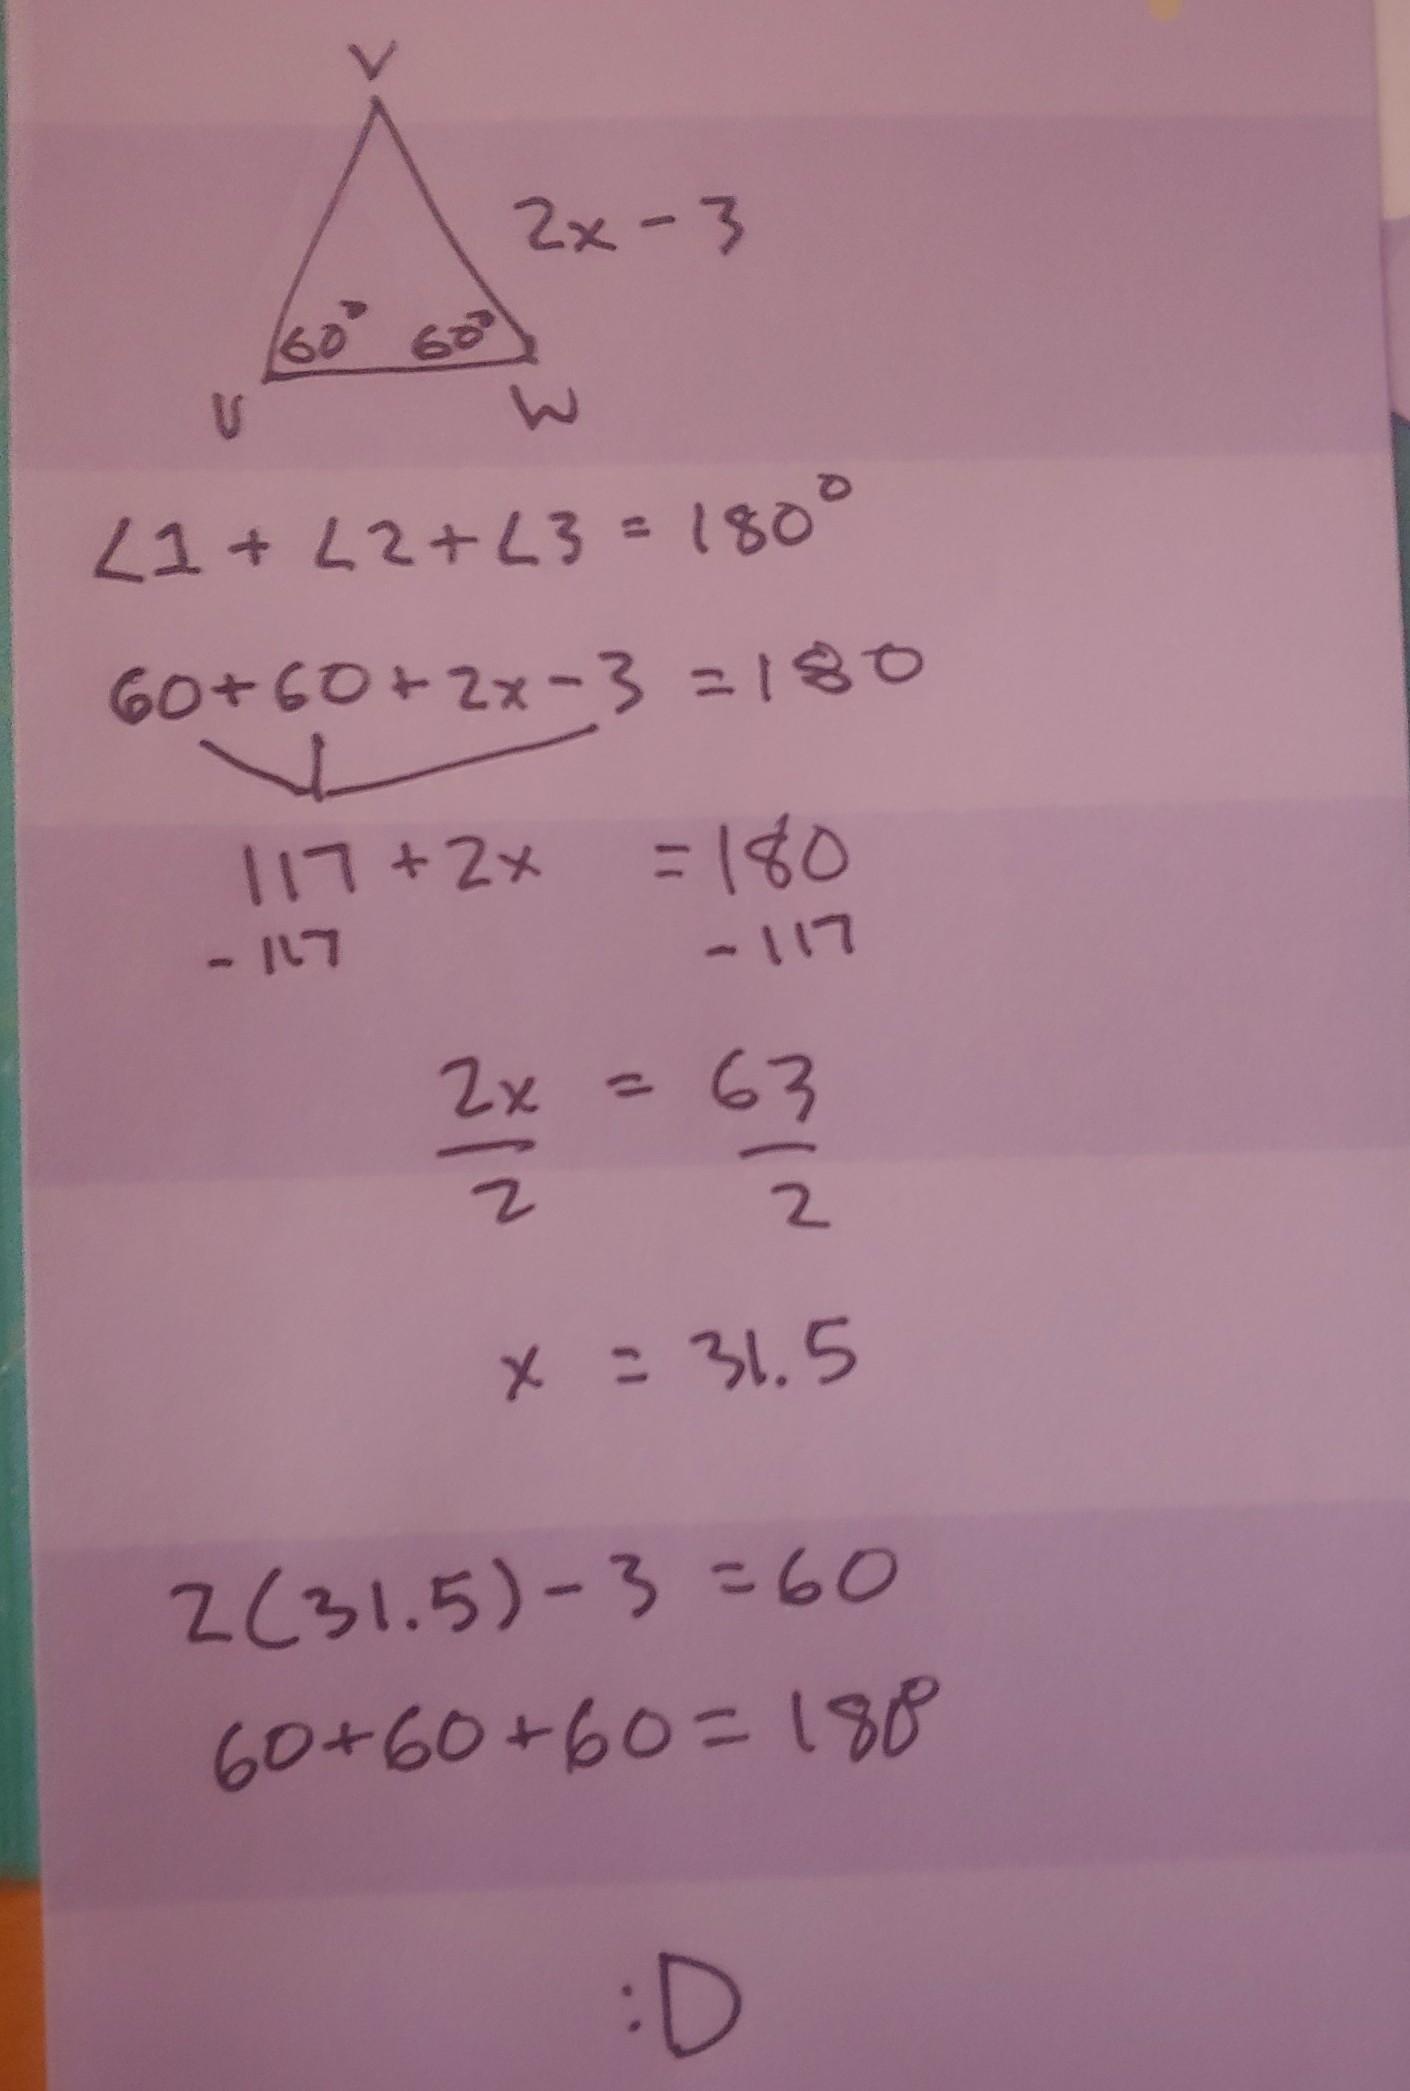 V
2x - 3
60° 60°
U W
∠1 + ∠2 + ∠3 = 180°
60 + 60 + 2x - 3 = 180
117 + 2x = 180
- 117 - 117
2x = 63
2 2
x = 31.5
2(31.5) - 3 = 60
60 + 60 + 60 = 180
:D